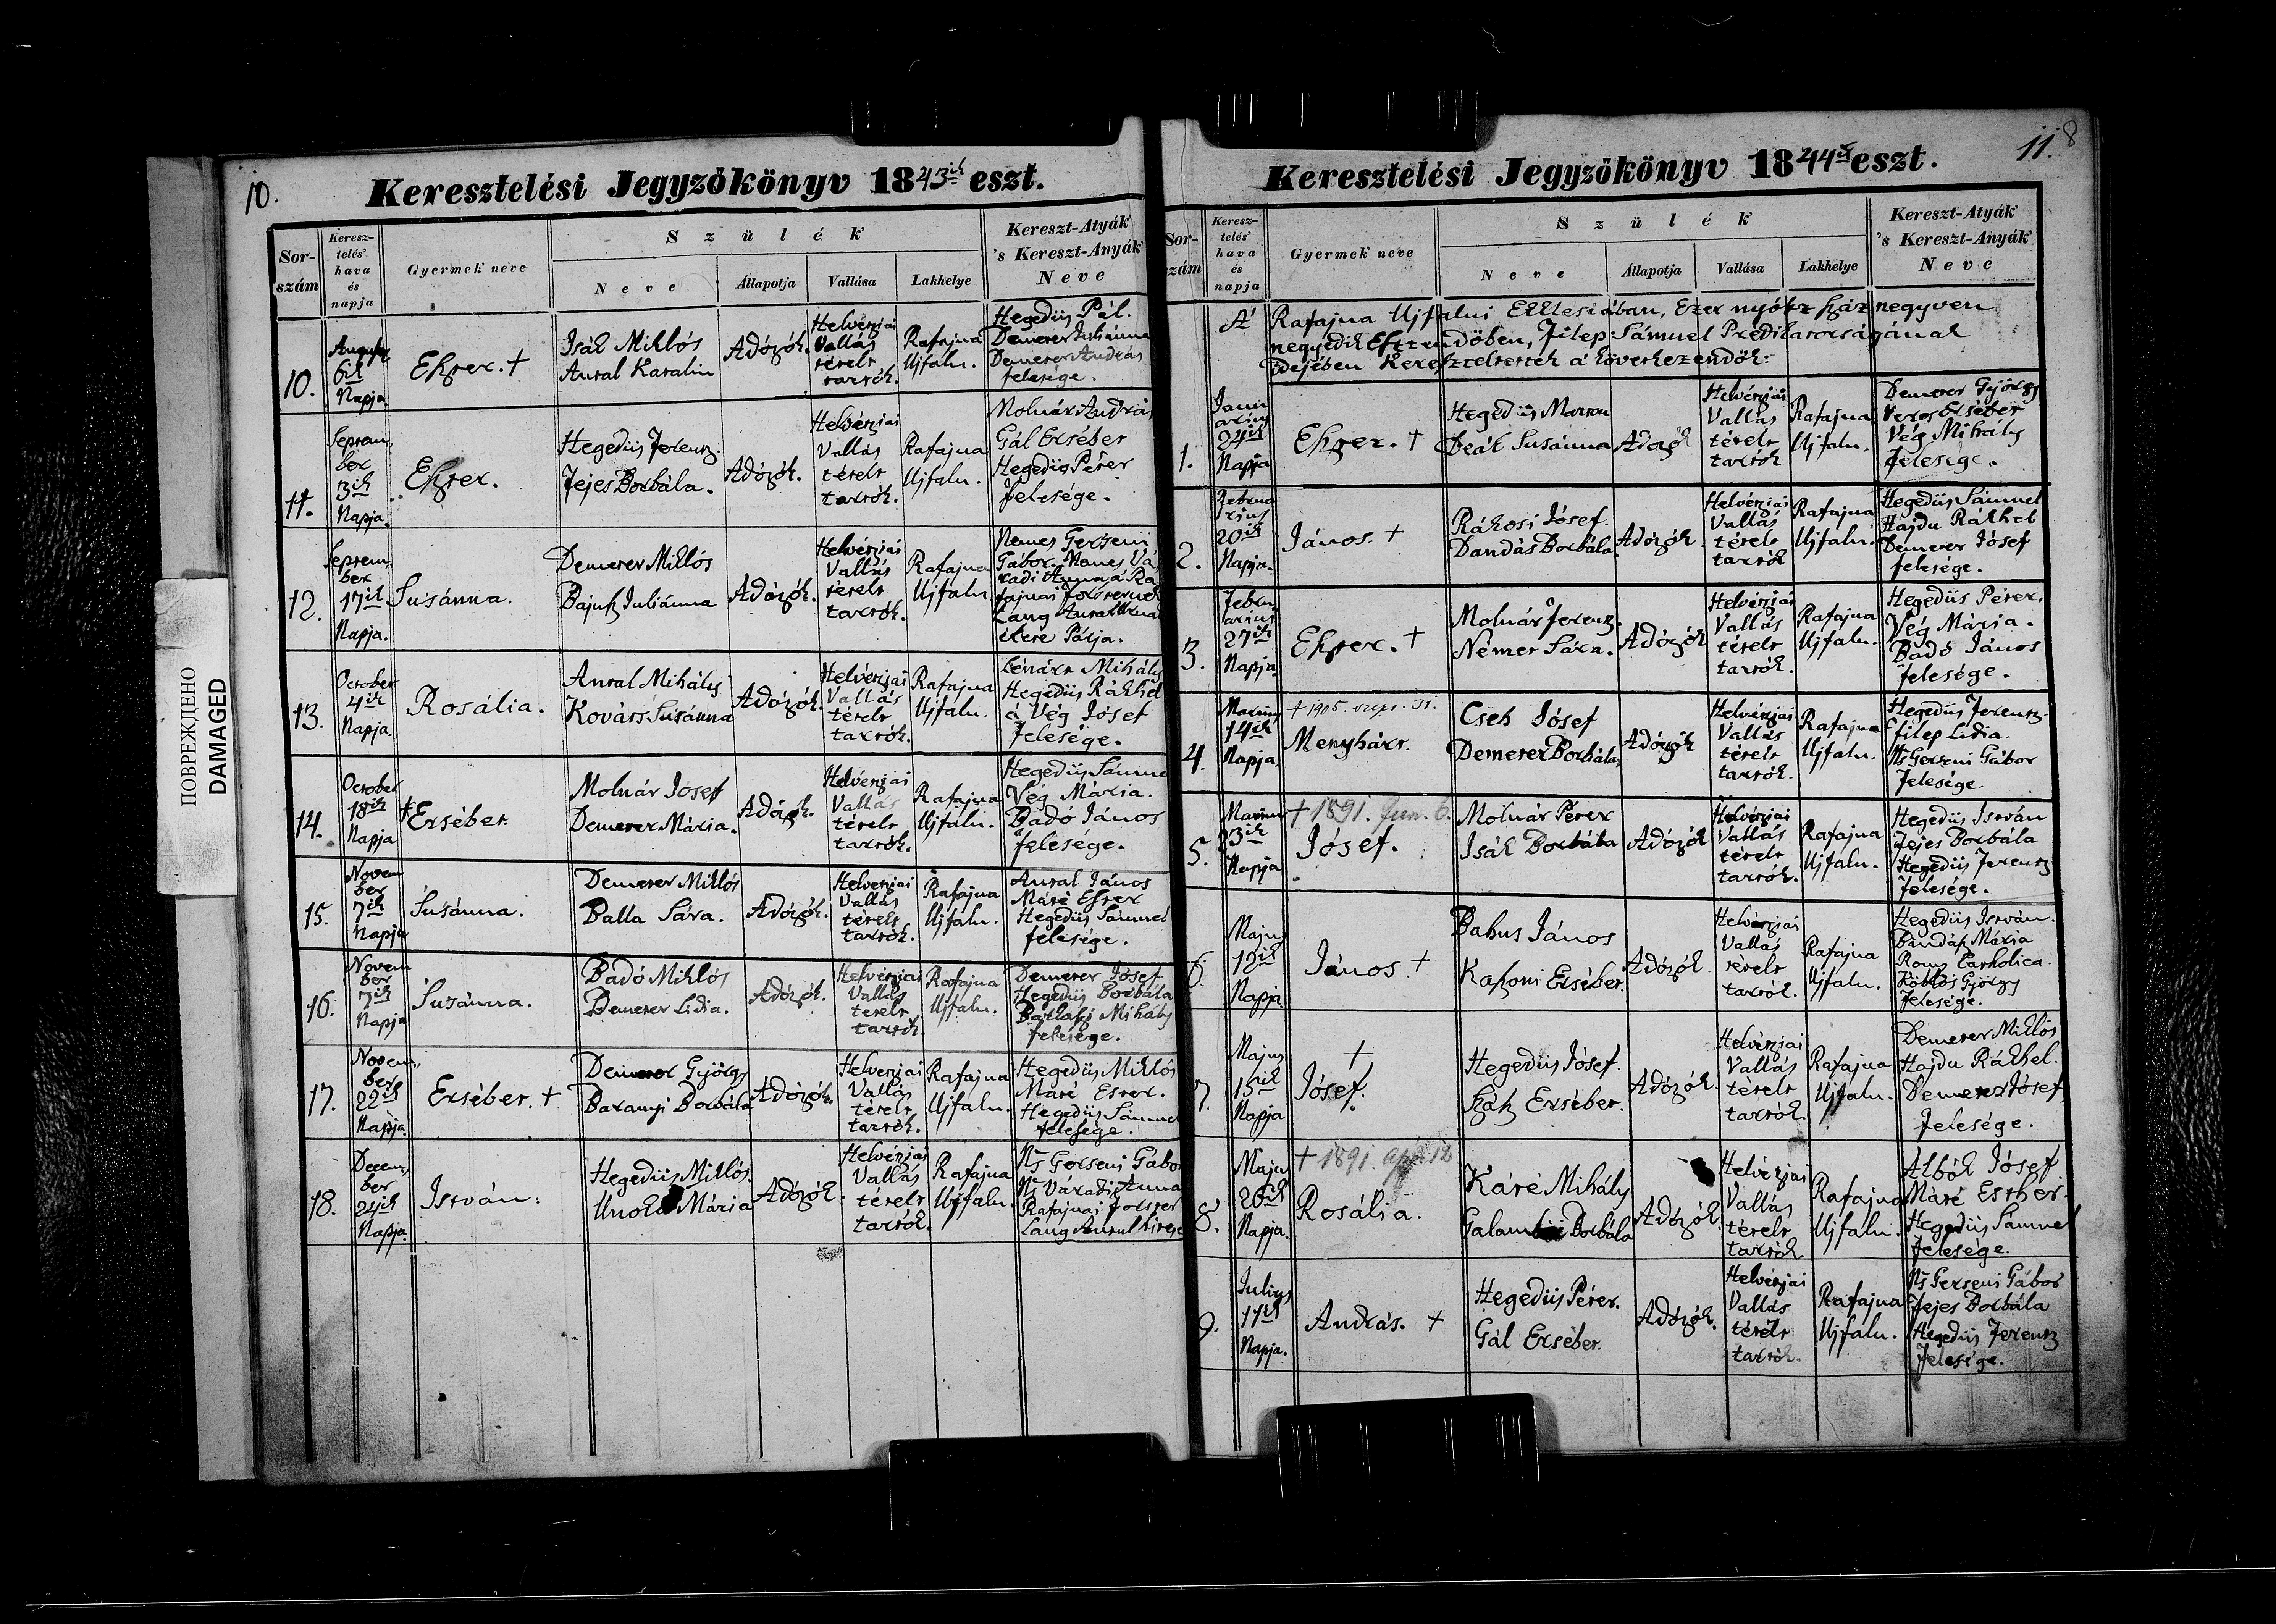 ПОВРЕЖДЕНО
DAMAGED
10.
Keresztelési Jegyzőkönyv 1843ik eszt.
Sor-szám
Keresz-telés' hava és napja
Gyermek neve
Szülék
Neve
Állapotja
Vallása
Lakhelye
Kereszt-Atyák 's Kereszt-Anyák Neve
10.
6ik
Napja
Eszter. †
Isák Miklós
Antal Katalin
Adózók.
Helvétziai
Vallás
tételt
tartók.
Rafajna
Ujfalu.
Hegedüs Pál.
Demeter Juliánna
Demeter András
felesége.
11.
Septem
ber
3ik
Napja.
Eszter.
Hegedüs Ferentz.
Fejes Borbála.
Adózók.
Helvétziai
Vallás
tételt
tartók.
Rafajna
Ujfalu.
Molnár András
Gál Ersébet
Hegedüs Péter
felesége.
12.
Septem
ber
17ik
Napja.
Susánna.
Demeter Miklós
Juliánna
Adózók.
Helvétziai
Vallás
tételt
tartók.
Rafajna
Ujfalu
Nemes Gerseni
Gábor. Nemes Vá
radi Anna á Ra
fajnai
Láng
Párja.
13.
October
4ik
Napja.
Rosália.
Antal Mihály
Kováts Susánna
Adózók.
Helvétziai
Vallás
tételt
tartók.
Rafajna
Ujfalu.
Lénárt Mihály
Hegedüs Rákhel
á Vég Jósef
felesége.
14.
October
18ik
Napja
† Ersébet.
Molnár Jósef
Demeter Mária.
Adózók.
Helvétziai
Vallás
tételt
tartók.
Rafajna
Ujfalu.
Hegedüs Sámue
Vég Mária.
Badó János
felesége.
15.
Novem
ber
7ik
Napja
Susánna.
Demeter Miklós
Balla Sára.
Adózók.
Helvétziai
Vallás
tételt
tartók.
Rafajna
Ujfalu.
Antal János
Máré Eszter
Hegedüs Sámuel
felesége.
16.
Novem
ber
7ik
Napja
Susánna.
Bádó Miklós
Demeter Lidia.
Adózók.
Helvétziai
Vallás
tételt
tartók.
Rafajna
Ujfalu.
Demeter Jósef
Hegedüs Borbála
Mihály
felesége.
17.
Novem
ber
22ik
Napja.
Ersébet. †
Demeter György
Baranyi Borbála
Adózók.
Helvétziai
Vallás
tételt
tartók.
Rafajna
Ujfalu.
Hegedüs Miklós
Máré Ester.
Hegedüs Sámuel
felesége.
18.
Decem
ber
24ik
Napja.
István.
Hegedüs Miklós.
Unoka Mária
Adózók.
Helvétziai
Vallás
tételt
tartók.
Rafajna
Ujfalu.
Ns Gerseni Gábor
Ns Váradi Anna
Rafajnai
Láng
11. 8
Keresztelési Jegyzőkönyv 1844ik eszt.
Sor-szám
Keresz-telés' hava és napja
Gyermek neve
Szülék
Neve
Állapotja
Vallása
Lakhelye
Kereszt-Atyák 's Kereszt-Anyák Neve
A' Rafajna Ujfalui Ekklesiában, Ezer nyóltz száz negyven
negyedik Esztendőben, Filep Sámuel Prédikátorságának
idejében Kereszteltettek a' következendők:
1.
Janu
arius
24ik
Napja
Eszter. †
Hegedüs Marton
Deák Susánna
Adózók
Helvétziai
Vallás
tételt
tartók
Rafajna
Ujfalu.
Demeter György
Veres Ersébet
Vég Mihály
felesége.
2.
Februa
rius
20ik
Napja.
János. †
Rákosi Jósef.
Dandás Borbála.
Adózók
Helvétziai
Vallás
tételt
tartók
Rafajna
Ujfalu.
Hegedüs Sámuel
Hajdu Rákhel
Demeter Jósef
felesége.
3.
Febru
arius
27ik
Napja
Eszter. †
Molnár Ferentz.
Német Sára.
Adózók
Helvétziai
Vallás
tételt
tartók.
Rafajna
Ujfalu.
Hegedüs Péter.
Vég Mária.
Badó János
felesége.
4.
Martius
14ik
Napja.
† 1905. szept. 31.
Menyhárt.
Cseh Jósef
Demeter Borbála
Adózók
Helvétziai
Vallás
tételt
tartók.
Rafajna
Ujfalu.
Hegedüs Ferentz
Filep Lidia.
Ns Gerseni Gábor
felesége.
5.
Martius
23ik
Napja
† 1891. Jun. 6.
Jósef.
Molnár Péter
Isák Borbála
Adózók
Helvétziai
Vallás
tételt
tartók.
Rafajna
Ujfalu.
Hegedüs István
Fejes Borbála
Hegedüs Ferentz
felesége.
6.
Majus
12ik
Napja
János. †
Bakus János
Ersébet.
Adózók.
Helvétziai
Vallás
tételt
tartók.
Rafajna
Ujfalu.
Hegedüs István.
Mária
Roms Catholica.
György
felesége.
7.
Majus
15ik
Napja
†
Jósef.
Hegedüs Jósef.
Szász Ersébet.
Adózók.
Helvétziai
Vallás
tételt
tartók.
Rafajna
Ujfalu.
Demeter Miklós
Hajdu Rákhel.
Demeter Jósef
felesége.
8.
Majus
26ik
Napja.
† 1891. apr. 12
Rosália.
Káré Mihály
Borbála
Adózók.
Helvétziai
Vallás
tételt
tartók
Rafajna
Ujfalu.
Albók Jósef
Máré Esther.
Hegedüs Sámuel
felesége.
9.
Julius
11ik
Napja.
András. †
Hegedüs Péter.
Gál Ersébet.
Adózók.
Helvétziai
Vallás
tételt
tartók.
Rafajna
Ujfalu.
Ns Gerseni Gábor
Fejes Borbála
Hegedüs Ferentz
felesége.